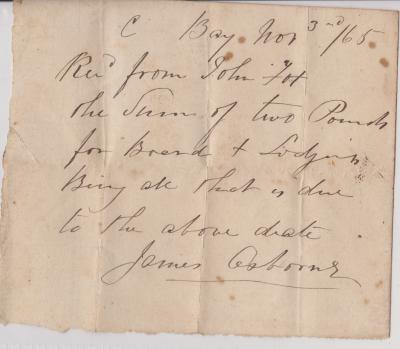 C Bay Nov 3rd/65
Recd from John Fox
the Sum of two Pounds
for Board + Lodging
Being all that is due
to the above date
James Osborne